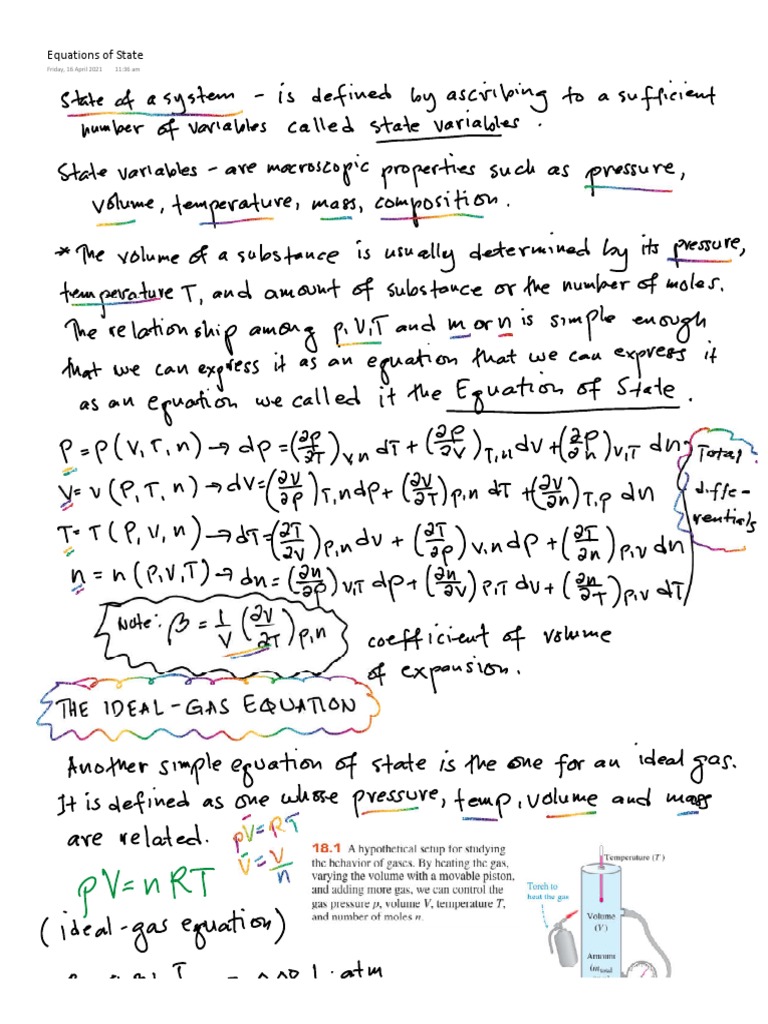 Equations of State
Friday, 16 April 2021 11:36 am
State of a system - is defined by ascribing to a sufficient
number of variables called state variables.
State variables - are macroscopic properties such as pressure,
volume, temperature, mass, composition.
* The volume of a substance is usually determined by its pressure,
temperature T, and amount of substance or the number of moles.
The relationship among p,V,T and m or n is simple enough
that we can express it as an equation that we can express it
as an equation we called it the Equation of State.
p = p(V,T,n) → dp = (∂p/∂T)V,n dT + (∂p/∂V)T,n dV + (∂p/∂n)V,T dn
V = V(P,T,n) → dV = (∂V/∂p)T,n dp + (∂V/∂T)p,n dT + (∂V/∂n)T,p dn
T = T(P,V,n) → dT = (∂T/∂V)p,n dV + (∂T/∂p)V,n dp + (∂T/∂n)p,V dn
n = n(P,V,T) → dn = (∂n/∂p)V,T dp + (∂n/∂V)P,T dV + (∂n/∂T)p,V dT
Total
diffe-
rentials
Note: β = 1/V (∂V/∂T)p,n
coefficient of volume
of expansion.
THE IDEAL-GAS EQUATION
Another simple equation of state is the one for an ideal gas.
It is defined as one whose pressure, temp, volume and mass
are related.
pV̄ = RT
V̄ = V/n
pV = nRT
(ideal-gas equation)
18.1 A hypothetical setup for studying
the behavior of gases. By heating the gas,
varying the volume with a movable piston,
and adding more gas, we can control the
gas pressure p, volume V, temperature T,
and number of moles n.
Temperature (T)
Torch to
heat the gas
Volume
(V)
Amount